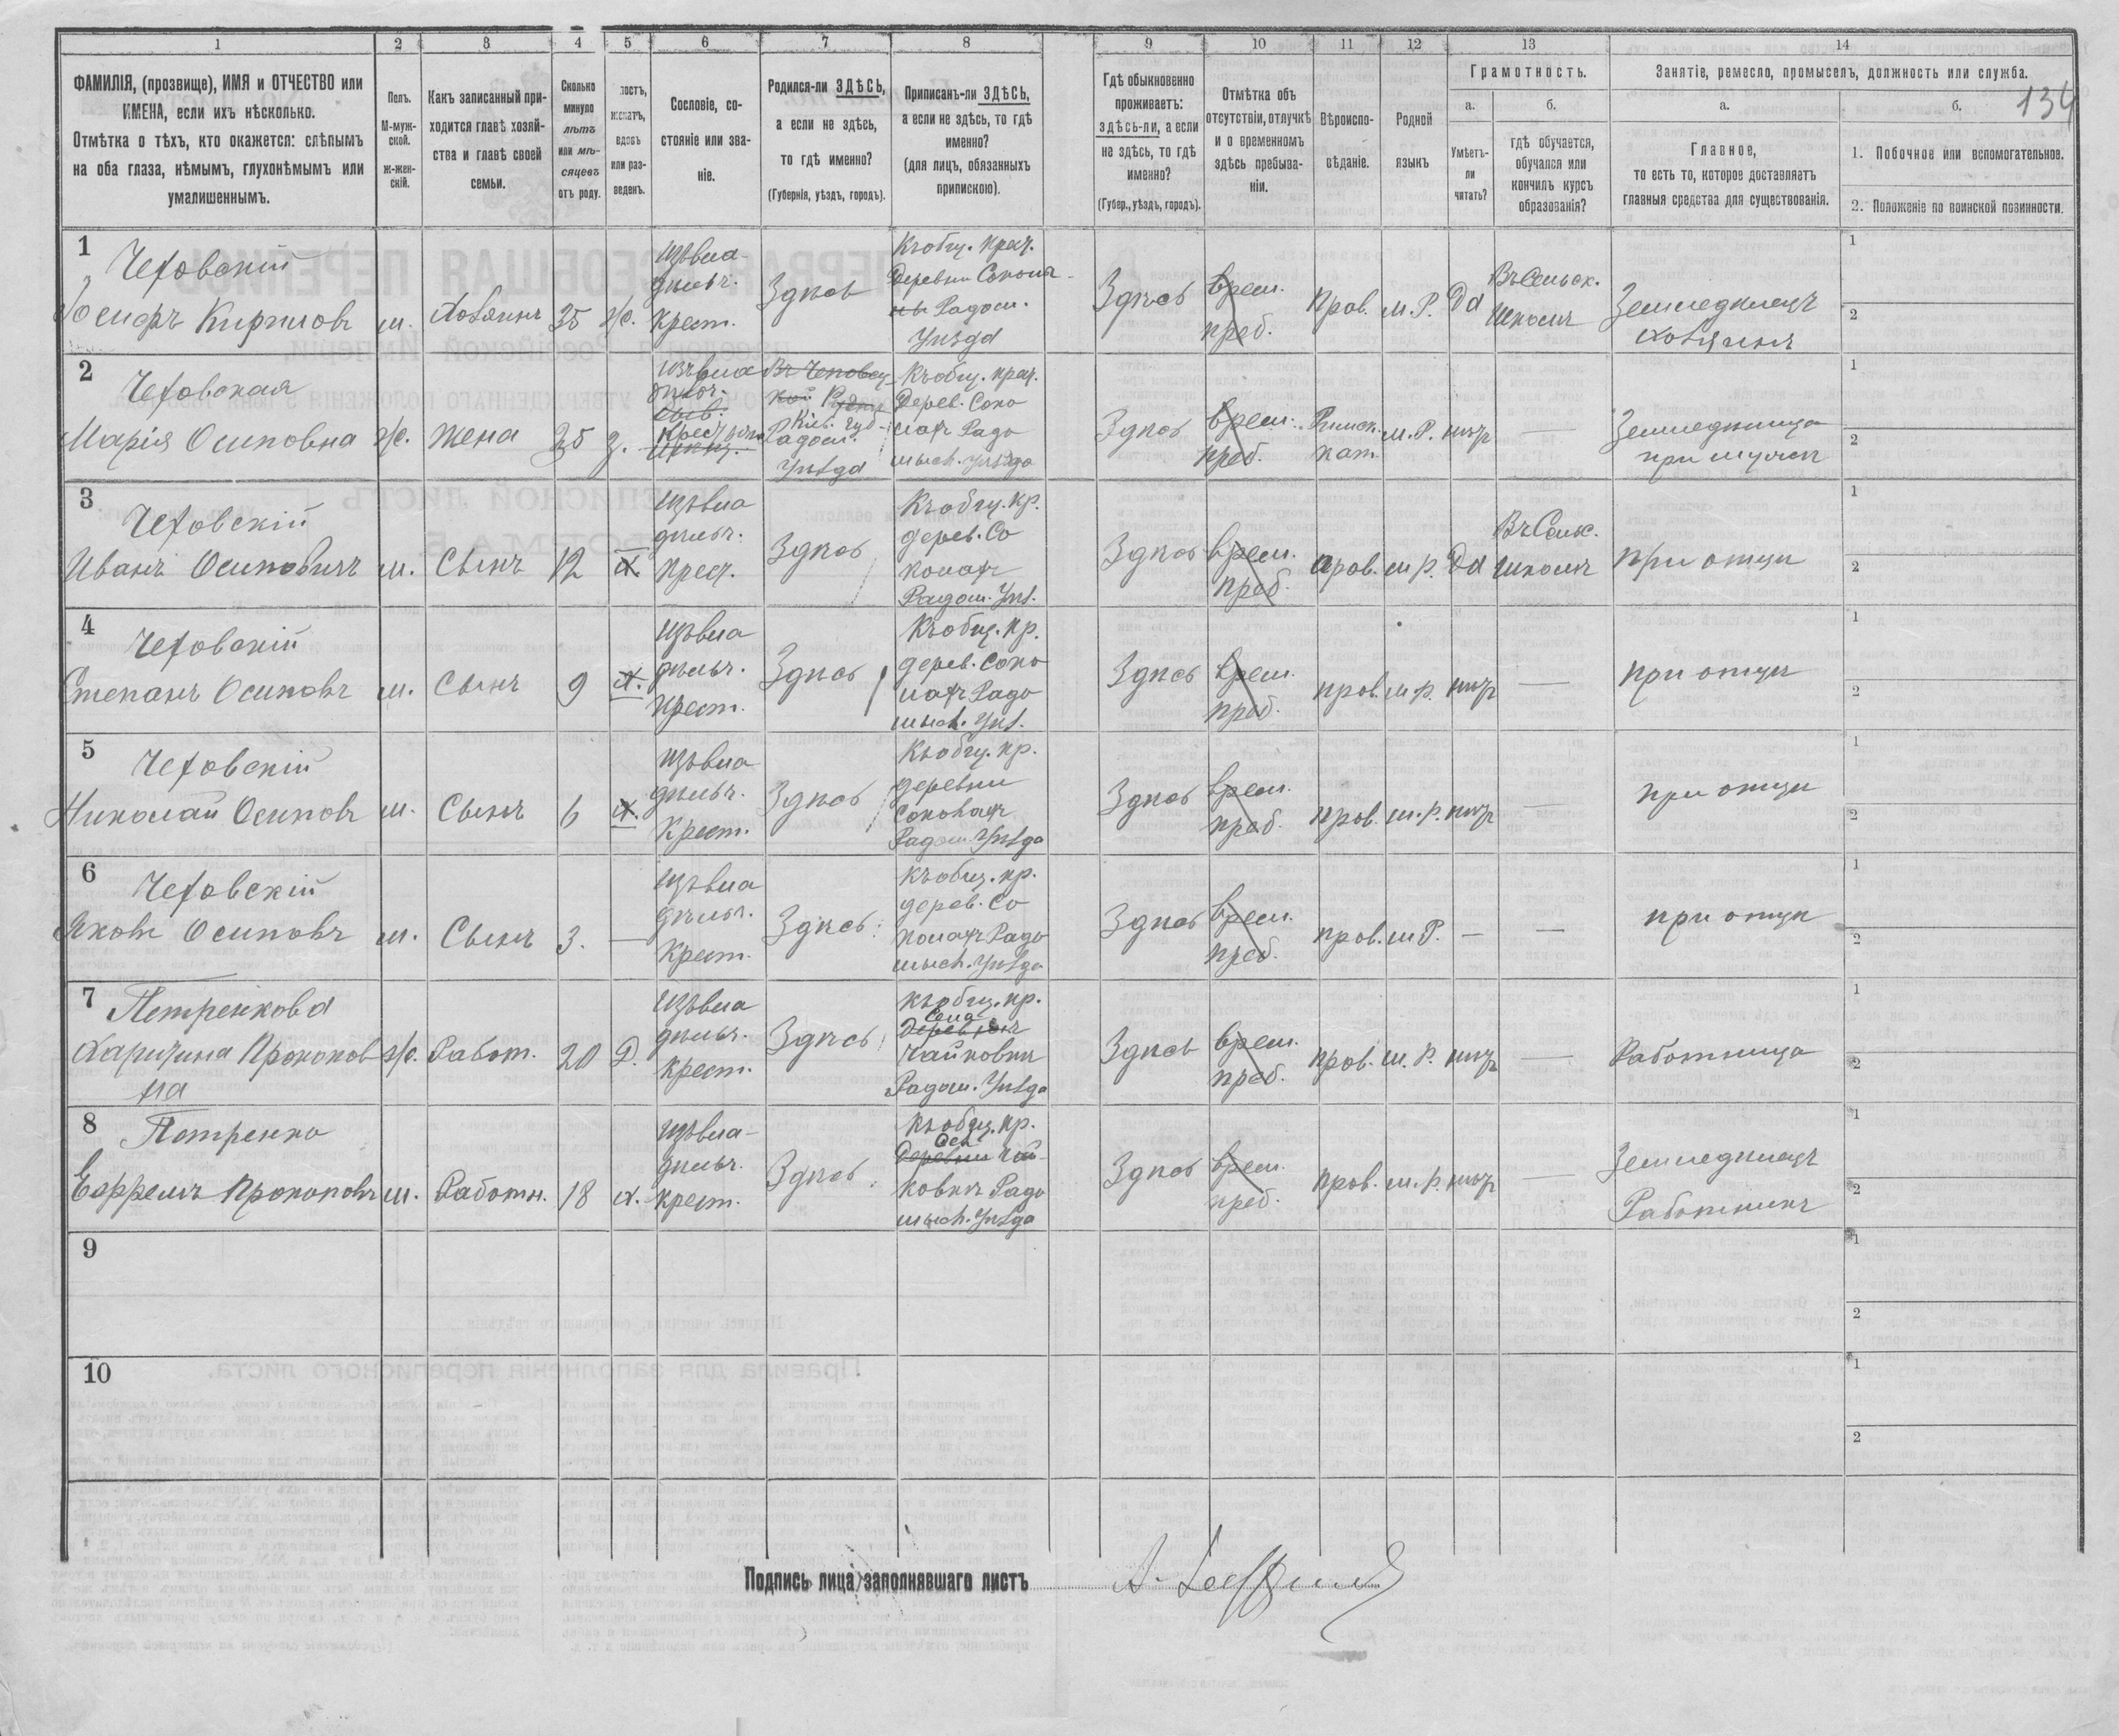 1 2 3 4 5 6 7 8 9 10 11 12 13 14
ФАМИЛІЯ, (прозвище), ИМЯ и ОТЧЕСТВО или
ИМЕНА, если ихъ нѣсколько.
Отмѣтка о тѣхъ, кто окажется: слѣпымъ
на оба глаза, нѣмымъ, глухонѣмымъ или
умалишеннымъ.
Полъ.
М-муж-
ской.
ж-жен-
скій.
Какъ записанный при-
ходится главѣ хозяй-
ства и главѣ своей
семьи.
Сколько
минуло
лѣтъ
или мѣ-
сяцевъ
отъ роду.
лостъ,
женатъ,
вдовъ
или раз-
веденъ.
Сословіе, со-
стояніе или зва-
ніе.
Родился-ли ЗДѢСЬ,
а если не здѣсь,
то гдѣ именно?
(Губернія, уѣздъ, городъ).
Приписанъ-ли ЗДѢСЬ,
а если не здѣсь, то гдѣ
именно?
(для лицъ, обязанныхъ
припискою).
Гдѣ обыкновенно
проживаетъ:
здѣсь-ли, а если
не здѣсь, то гдѣ
именно?
(Губер., уѣздъ, городъ).
Отмѣтка объ
отсутствіи, отлучкѣ
и о временномъ
здѣсь пребыва-
ніи.
Вѣроиспо-
вѣданіе.
Родной
языкъ
Грамотность.
а.
Умѣетъ-
ли
читать?
б.
гдѣ обучается,
обучался или
кончилъ курсъ
образованія?
Занятіе, ремесло, промыселъ, должность или служба.
а.
Главное,
то есть то, которое доставляетъ
главныя средства для существованія.
б.
134
1. Побочное или вспомогательное.
2. Положеніе по воинской повинности.
1
Чеховскій
Іосифъ Кириловъ
м.
Хозяинъ
35
ж.
крест.
Здѣсь
Къ общ. крест.
Радом.
Уѣзда
Здѣсь
врем.
преб.
Прав.
м. Р.
Да
Въ Сельск.
школѣ
Земледѣлецъ
хозяинъ
1
2
2
Чеховская
Марія Осиповна
ж.
Жена
35
з.
Кіев. губ.
Радом.
Уѣзда
Къ общ. крест.
Дерев. Соко
Радо
мысл. Уѣзда
Здѣсь
врем.
преб.
Римск.
кат.
м. Р.
нѣтъ
—
при мужѣ
1
2
3
Чеховскій
Иванъ Осиповичъ
м.
Сынъ
12
х.
Здѣсь
Къ общ. кр.
дерев. Со
Радом. Уѣз.
Здѣсь
врем.
преб.
прав.
м. р.
Да
Въ Сельск.
школѣ
при отцѣ
1
2
4
Чеховскій
Степанъ Осиповъ
м.
Сынъ
9
х.
крест.
Здѣсь
Къ общ. кр.
дерев. Соко
Радо
мысл. Уѣз.
Здѣсь
врем.
преб.
прав.
м. р.
нѣтъ
—
при отцѣ
1
2
5
Чеховскій
Николай Осиповъ
м.
Сынъ
6
х.
Крест.
Здѣсь
Къ общ. кр.
деревни
Радом. Уѣзда
Здѣсь
врем.
преб.
прав.
м. р.
нѣтъ
—
при отцѣ
1
2
6
Чеховскій
Яковъ Осиповъ
м.
Сынъ
3.
—
Крест.
Здѣсь
Къ общ. кр.
дерев. Со
Радо
мысл. Уѣзда
Здѣсь
врем.
преб.
прав.
м. Р.
—
—
при отцѣ
1
2
7
Петренкова
Харитина Прокопов
на
ж.
Работ.
20
Д.
Крест.
Здѣсь
Къ общ. кр.
Села
Чайковки
Радом. Уѣзда
Здѣсь
врем.
преб.
прав.
м. Р.
нѣтъ
—
Работница
1
2
8
Петренко
Ефремъ Прокоповъ
м.
Работн.
18
х.
крест.
Здѣсь
Къ общ. кр.
Деревни Чай-
ковки Радо
мысл. Уѣзда
Здѣсь
врем.
преб.
прав.
м. р.
нѣтъ
—
Земледѣлецъ
Работникъ
1
2
9
1
2
10
1
2
Подпись лица, заполнявшаго листъ